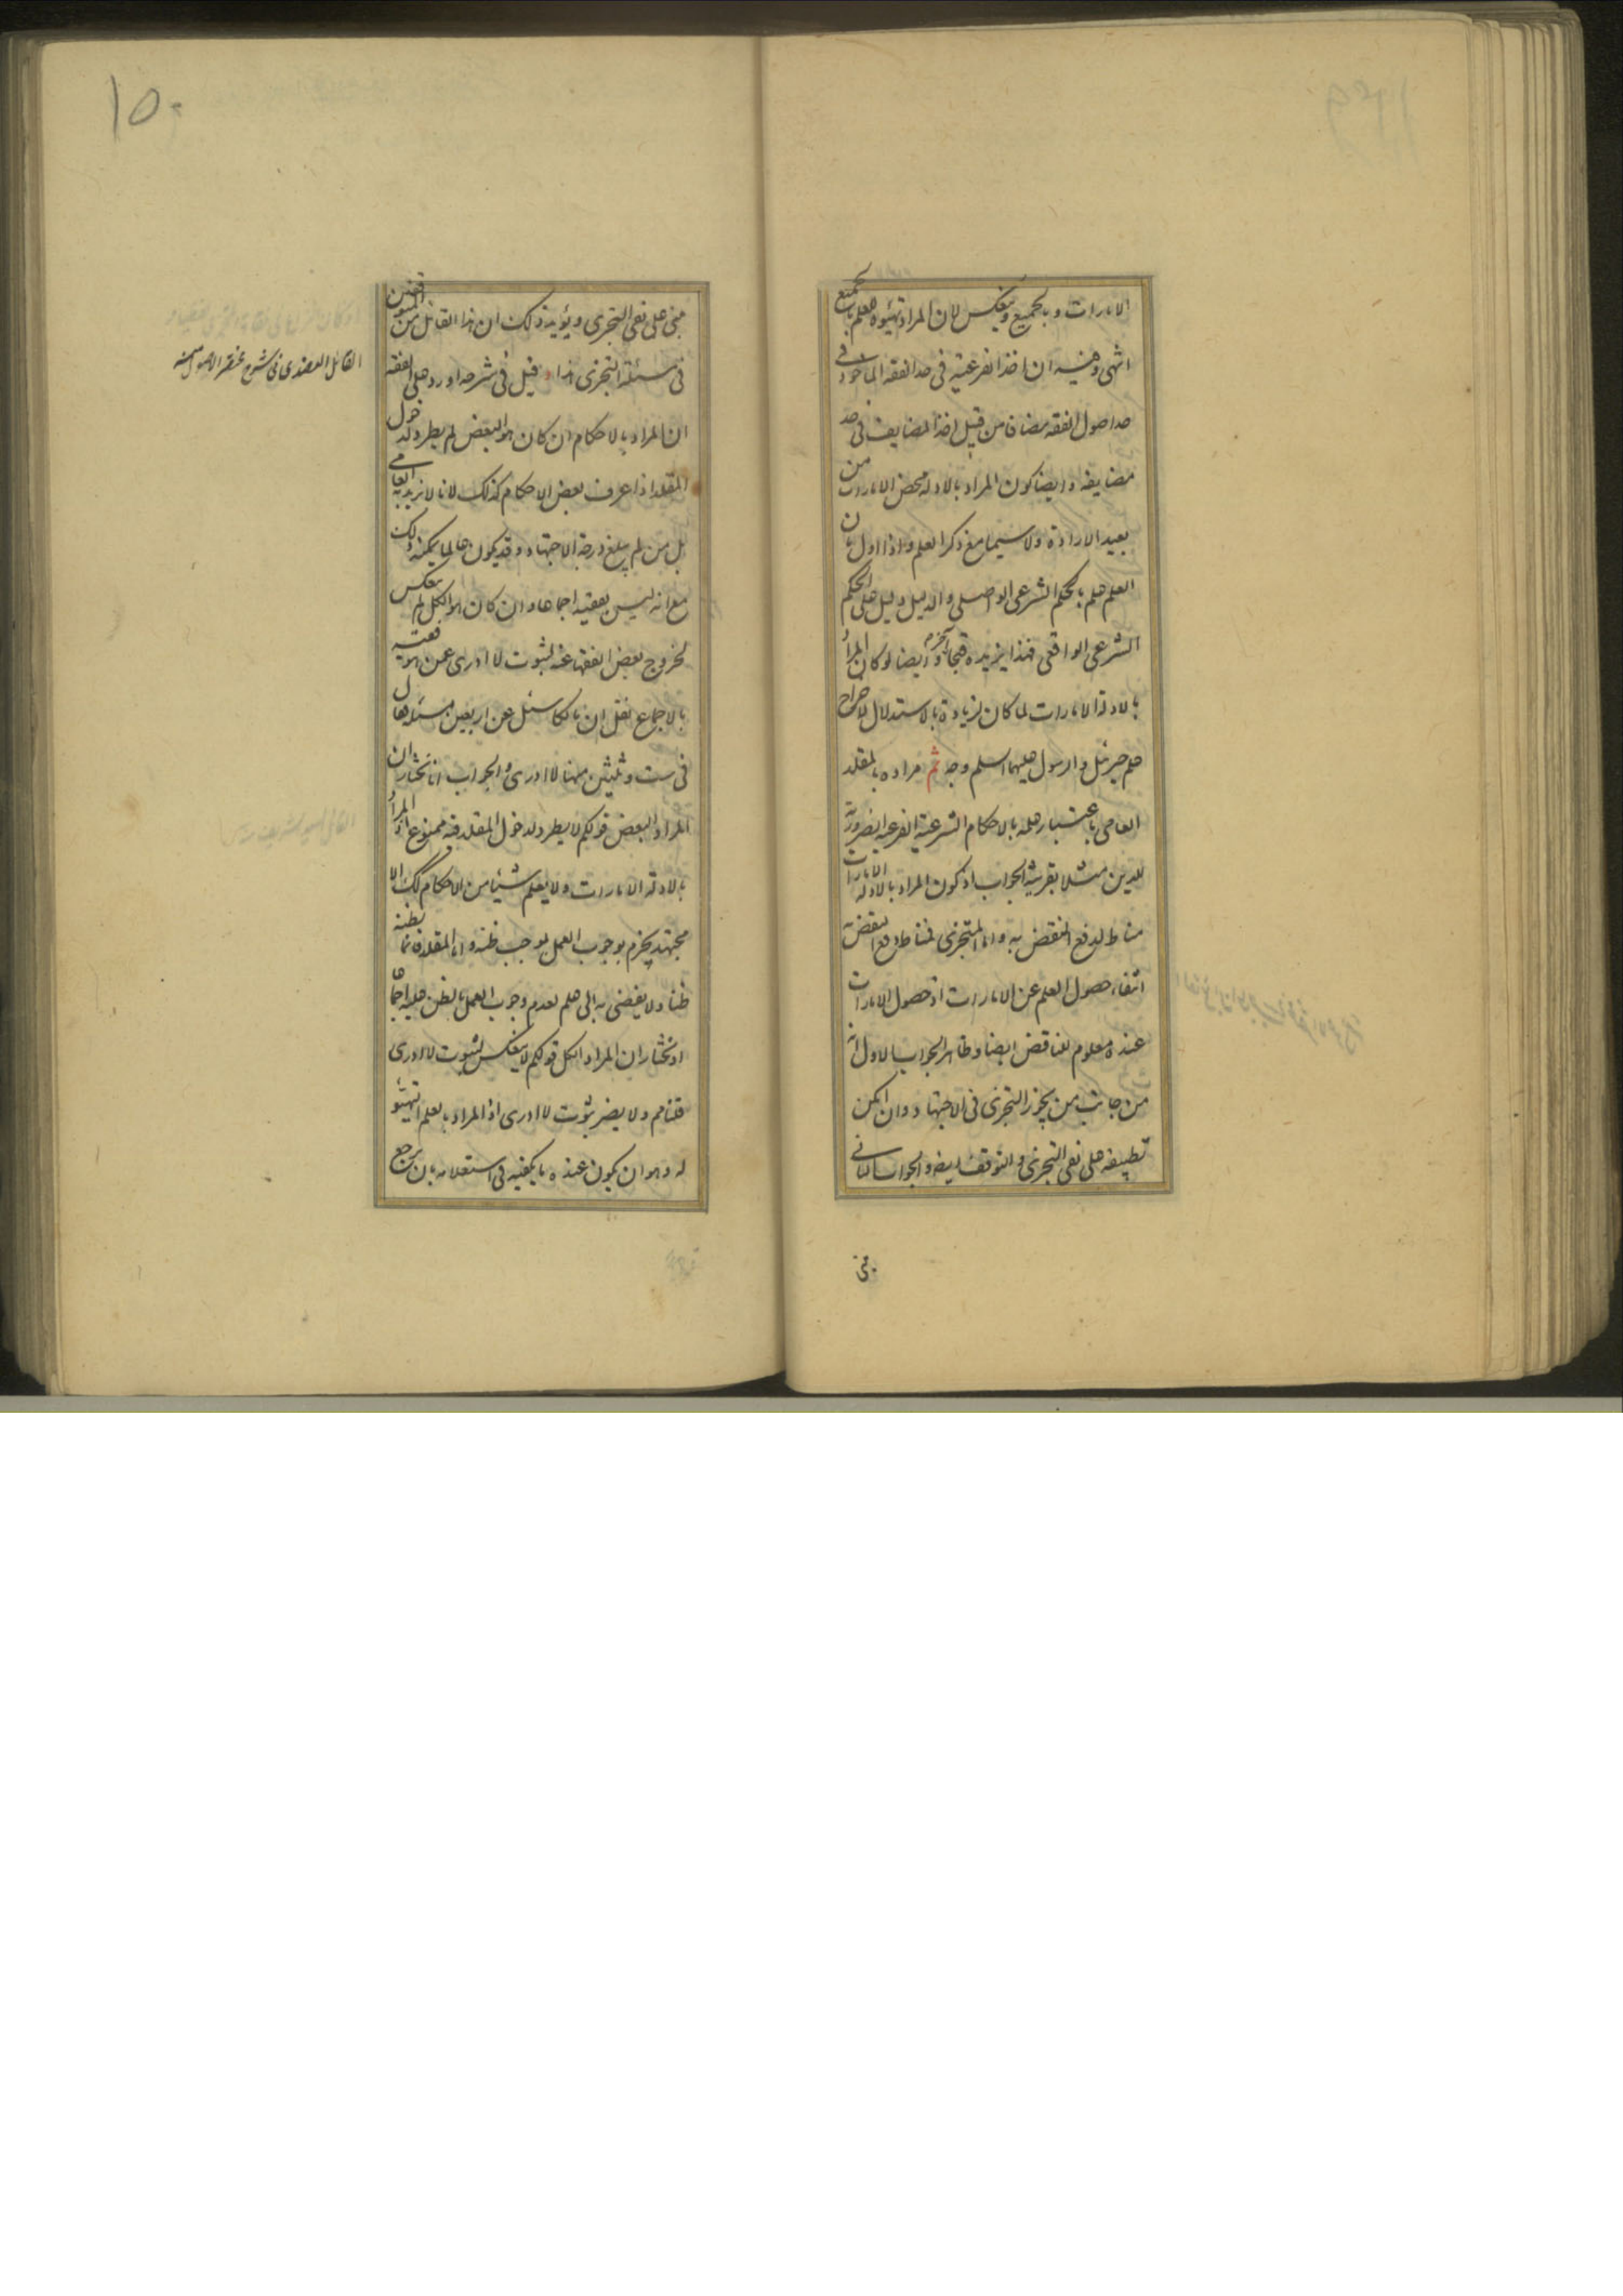 الامارات وبالجميع وينعكس لان المراد تهيئوه للعلم بالجميع
انتهى وفيه ان اخذ الفرعية فى حد الفقه الماخوذ فى
حد اصول الفقه مضافا من قبيل اخذ المضايف فى حد
مضايفه وايضا كون المراد بالادلة محض الامارات من
بعيد الارادة ولا سيما مع ذكر العلم واذا اول بان
العلم علم بالحكم الشرعى الواصلى والدليل دليل على الحكم
الشرعى الواقعى فهذا يزيده قبحا آخر وايضا لو كان المراد
بالادلة الامارات لما كان لزيادة بالاستدلال لاخراج
علم جبرئيل والرسول عليهما السلم وجه ثم مراده بالمقلد
العامى باعتبار علمه بالاحكام الشرعية الفرعية الضرورية
للدين مثلا بقرينة الجواب اذ كون المراد بالادلة الامارات
مناط لدفع النقض به واما المتجزى فمناط دفع النقض به
انتفاء حصول العلم عن الامارات اذ حصول الامارات
عنده معلوم لمناقض ايضا وظاهر الجواب الاول انه
من جانب من يجوز التجزى فى الاجتهاد وان امكن
تطبيقه على نفى التجزى والتوقف ايضا والجواب الثانى
مبنى
١٥٠
مبنى على نفى التجزى ويؤيد ذلك ان هذا القائل من المتوقفين
فى مسئلة التجزى هذا وقيل فى شرحه اورد على حد الفقه
ان المراد بالاحكام ان كان هو البعض لم يطرد لدخول
المقلد اذا عرف بعض الاحكام كذلك لانا لا نريد به العامى
بل من لم يبلغ درجة الاجتهاد وقد يكون عالما يمكنه ذلك
مع انه ليس بفقيه اجماعا وان كان هو الكل لم ينعكس
لخروج بعض الفقهاء عنه لثبوت لا ادرى عمن هو فقيه
بالاجماع نقل ان مالكا سئل عن اربعين مسئلة فقال
فى ست وثلثين منها لا ادرى والجواب انا نختار ان
المراد البعض قولكم لا يطرد لدخول المقلد فيه ممنوع اذ المراد
بالادلة الامارات ولا يعلم شيئا من الاحكام كك الا
مجتهد يجزم بوجوب العمل بموجب ظنه واما المقلد فانما يظنه
ظنا ولا يفضى به الى علم لعدم وجوب العمل بالظن عليه اجماعا
او نختار ان المراد الكل قولكم لا ينعكس لثبوت لا ادرى
قلنا مم ولا يضر ثبوت لا ادرى اذ المراد بالعلم التهيئو
له وهو ان يكون عنده ما يكفيه فى استعلامه بان يرجع
القائل العضدى فى شرح مختصر الاصول منه